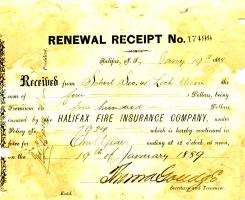 RENEWAL RECEIPT No. 17499
Halifax, N. S., Jany 19th 188
Received from Robert
sum of four Dollars, being
Premium on five hundred Dollars
insured by the HALIFAX FIRE INSURANCE COMPANY, under
Policy No. 7934 which is hereby continued in
for One Year ending at 12 o'clock, at noon,
on the 19th of January 1889
Secretary and Treasurer.